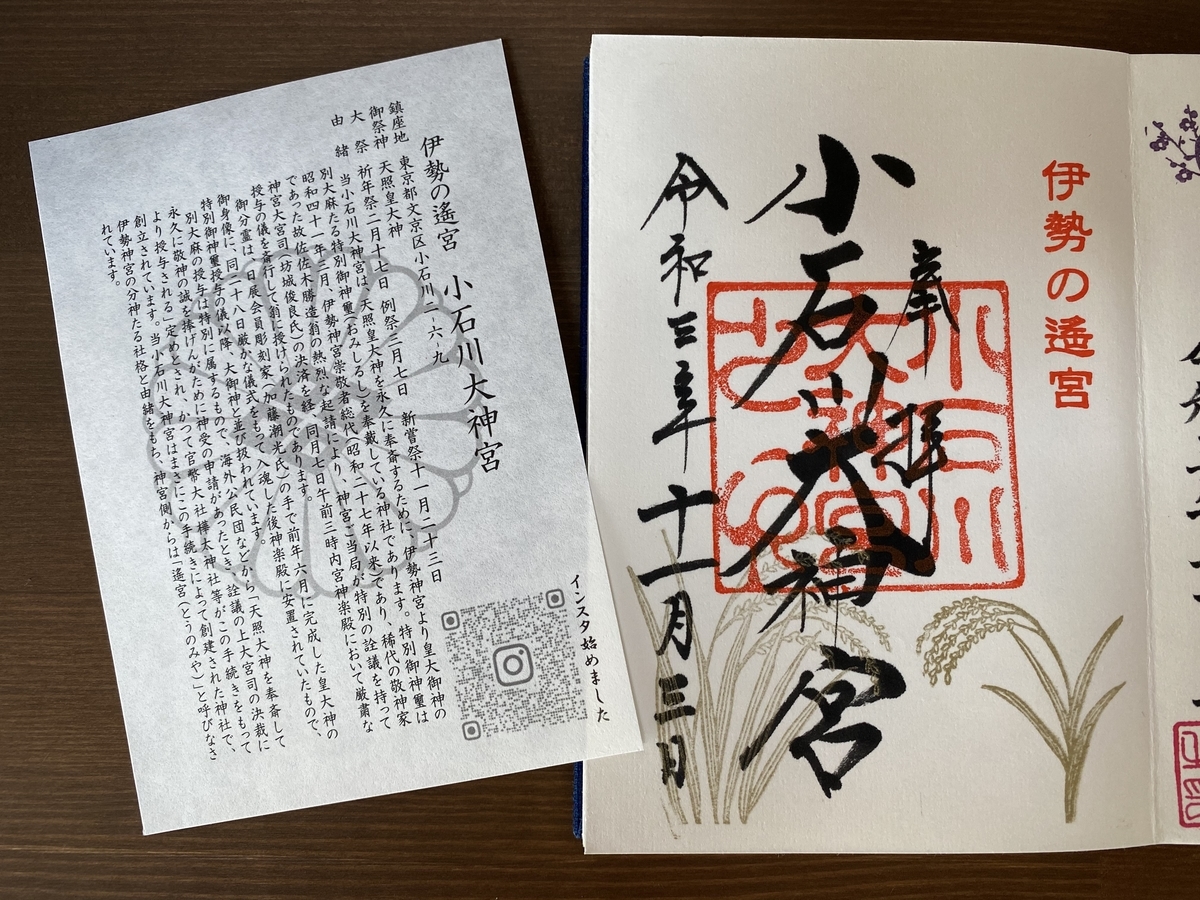 伊勢の遙宮 小石川大神宮
鎮座地 東京都文京区小石川二・六・九
御祭神 天照皇大神
大祭 祈年祭二月十七日 例祭三月七日 新嘗祭十一月二十三日
由緒 当小石川大神宮は、天照皇大神を永久に奉斎するために、伊勢神宮より皇大御神の
別大麻たる特別御神璽(おみしるし)を奉戴している神社であります。特別御神璽は
昭和四十一年三月、伊勢神宮崇敬者総代(昭和二十七年以来)であり、稀代の敬神家
であった故佐佐木勝造翁の熱烈な起請により、神宮ご当局が特別の詮議を持って
神宮大宮司(坊城俊良氏)の決済を経、同月七日午前三時内宮神楽殿において厳粛な
授与の儀を斎行して翁に授けられたものであります。
御分霊は、日展会員彫刻家(加藤潮光氏)の手で前年六月に完成した皇大神の
御身像に、同二十八日厳かな儀式をもって入魂した後神楽殿に安置されていたもので、
特別御神璽授与の儀以降、大御神と並び扱われています。
別大麻の授与は特別に属するもので、海外公民団などから「天照大神を奉斎して
永久に敬神の誠を捧げんがために神受の申請があったとき、詮議の上大宮司の決裁に
より授与される」定めとされ、かつて官幣大社樺太神社等がこの手続きをもって
創立されています。当小石川大神宮はまさにこの手続きによって創建された神社で、
伊勢神宮の分神たる社格と由緒をもち、神宮側からは「遥宮(とうのみや)」と呼びなさ
れています。
インスタ始めました
伊勢の遙宮
奉拝
小石川大神宮
令和三年十一月三日
小石川
大神宮